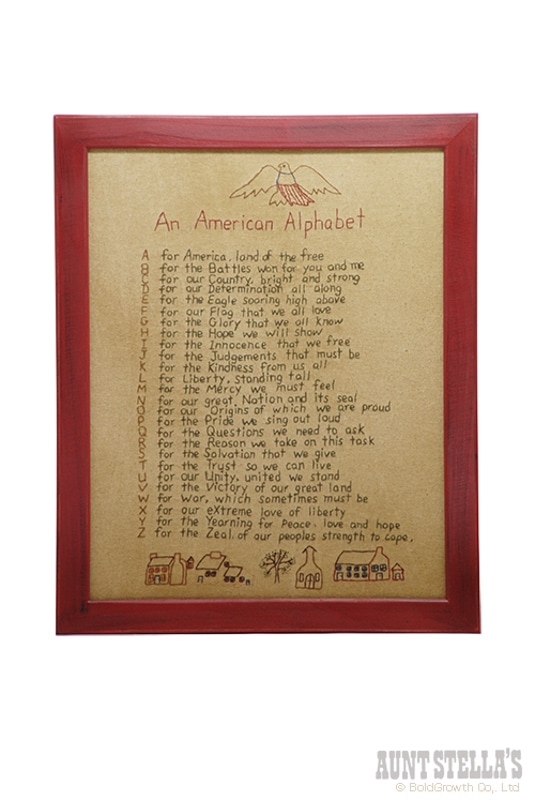 An American Alphabet
A for America, land of the free
B for the Battles won for you and me
C for our Country, bright and strong
D for our Determination all along
E for the Eagle soaring high above
F for our Flag that we all love
G for the Glory that we all know
H for the Hope we will show
I for the Innocence that we free
J for the Judgements that must be
K for the Kindness from us all
L for Liberty, standing tall
M for the Mercy we must feel
N for our great Nation and its seal
O for our Origins of which we are proud
P for the Pride we sing out loud
Q for the Questions we need to ask
R for the Reason we take on this task
S for the Salvation that we give
T for the Trust so we can live
U for our Unity, united we stand
V for the Victory of our great land
W for War, which sometimes must be
X for our eXtreme love of liberty
Y for the Yearning for Peace, love and hope
Z for the Zeal, of our peoples strength to cope.
AUNT STELLA'S
© BoldGrowth Co,. Ltd